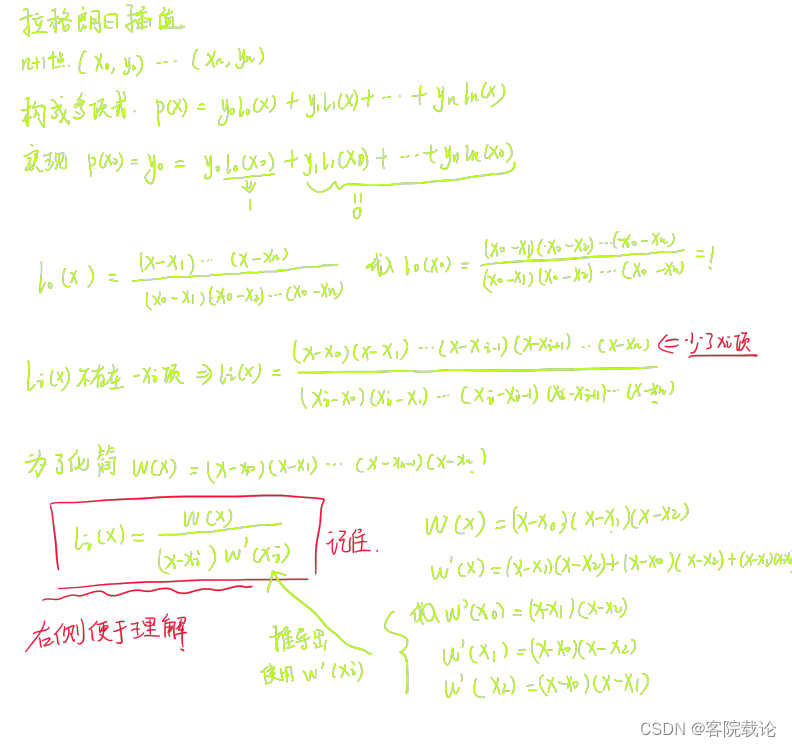 拉格朗日插值
n+1个点 (x₀, y₀) ⋯ (xₙ, yₙ)
构成多项式. p(x) = y₀l₀(x) + y₁l₁(x) + ⋯ + yₙlₙ(x)
实现 p(x₀) = y₀ = y₀l₀(x₀) + y₁l₁(x₀) + ⋯ + yₙlₙ(x₀)
1 0
l₀(x) = (x-x₁)⋯(x-xₙ) / (x₀-x₁)(x₀-x₂)⋯(x₀-xₙ) 代入 l₀(x₀) = (x₀-x₁)(x₀-x₂)⋯(x₀-xₙ) / (x₀-x₁)(x₀-x₂)⋯(x₀-xₙ) = 1
lᵢ(x) 不存在 -xᵢ项 ⇒ lᵢ(x) = (x-x₀)(x-x₁)⋯(x-xᵢ₋₁)(x-xᵢ₊₁)⋯(x-xₙ) / (xᵢ-x₀)(xᵢ-x₁)⋯(xᵢ-xᵢ₋₁)(xᵢ-xᵢ₊₁)⋯(x-xₙ) ⇐ 少了xᵢ项
为了化简 W(x) = (x-x₀)(x-x₁)⋯(x-xₙ₋₁)(x-xₙ)
lᵢ(x) = W(x) / (x-xᵢ) W'(xᵢ) 记住.
右侧便于理解
推导出
使用 W'(xᵢ)
W(x) = (x-x₀)(x-x₁)(x-x₂)
W'(x) = (x-x₁)(x-x₂)+(x-x₀)(x-x₂)+(x-x₁)(x-x₀)
代入 W'(x₀) = (x-x₁)(x-x₂)
W'(x₁) = (x-x₀)(x-x₂)
W'(x₂) = (x-x₀)(x-x₁)
CSDN @客院载论